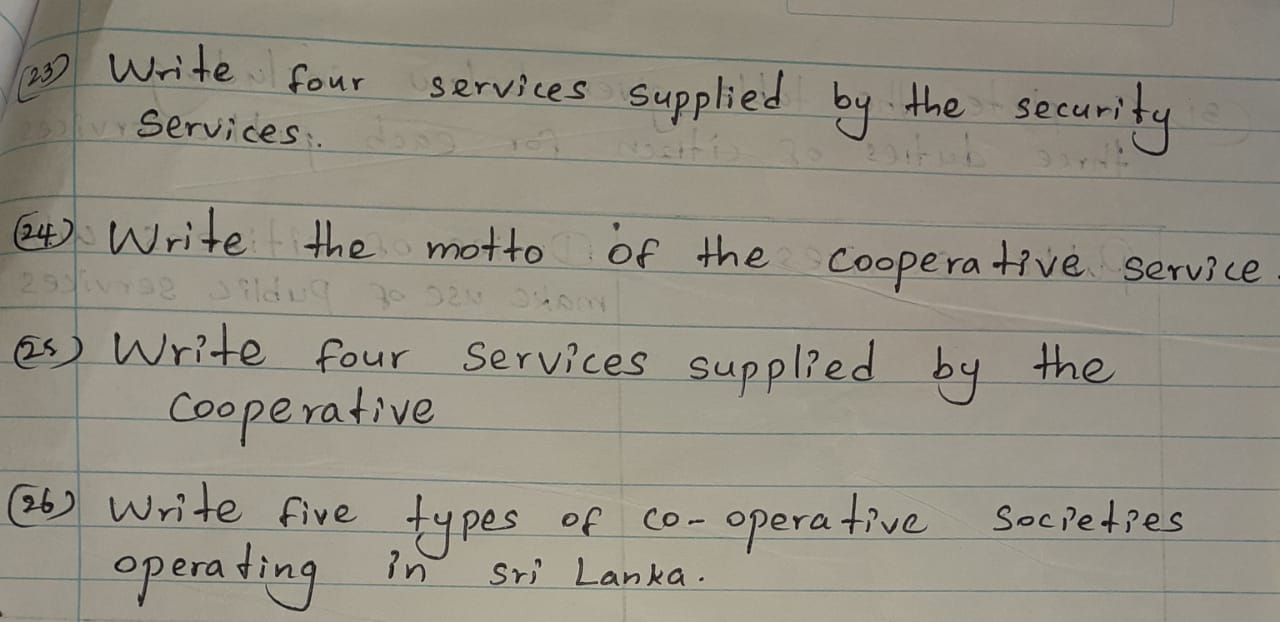 (23) Write four services supplied by the security
Services.
(24) Write the motto of the cooperative service.
(25) Write four services supplied by the
cooperative
(26) Write five types of co-operative societies
operating in Sri Lanka.